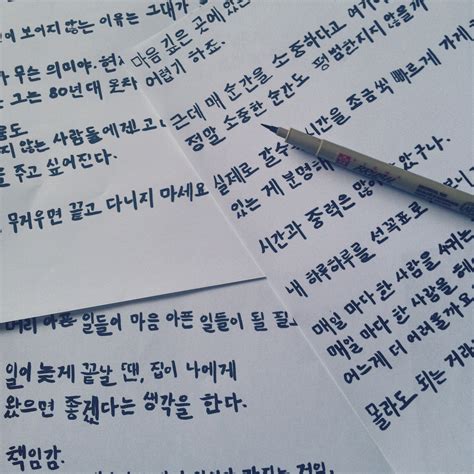 이 보이지 않는 이유는 그대가
가 무슨 의미야. 현
그는 80년대
지 않는 사람들에겐
을 주고 싶어진다.
무거우면 끌고 다니지 마세요
마음 깊은 곳에 있는
어렵기 하죠.
근데 매 순간을 소중하다고 여기
정말 소중한 순간도 평범한지지 않을까
실제로 갈수 시간을 조금씩 빠르게 가게
있는 게 분명해 았구나.
시간과 중력은 많
내 하루하루를 선곡표로
매일 마다 한 사람을
매일 마다 한 사람을
어느게 더 어려울까
몰라도 되는 거라
머리 아픈 일들이 마음 아픈 일들이 될 필
일이 늦게 끝날 땐, 집이 나에게
왔으면 좋겠다는 생각을 한다.
책임감.